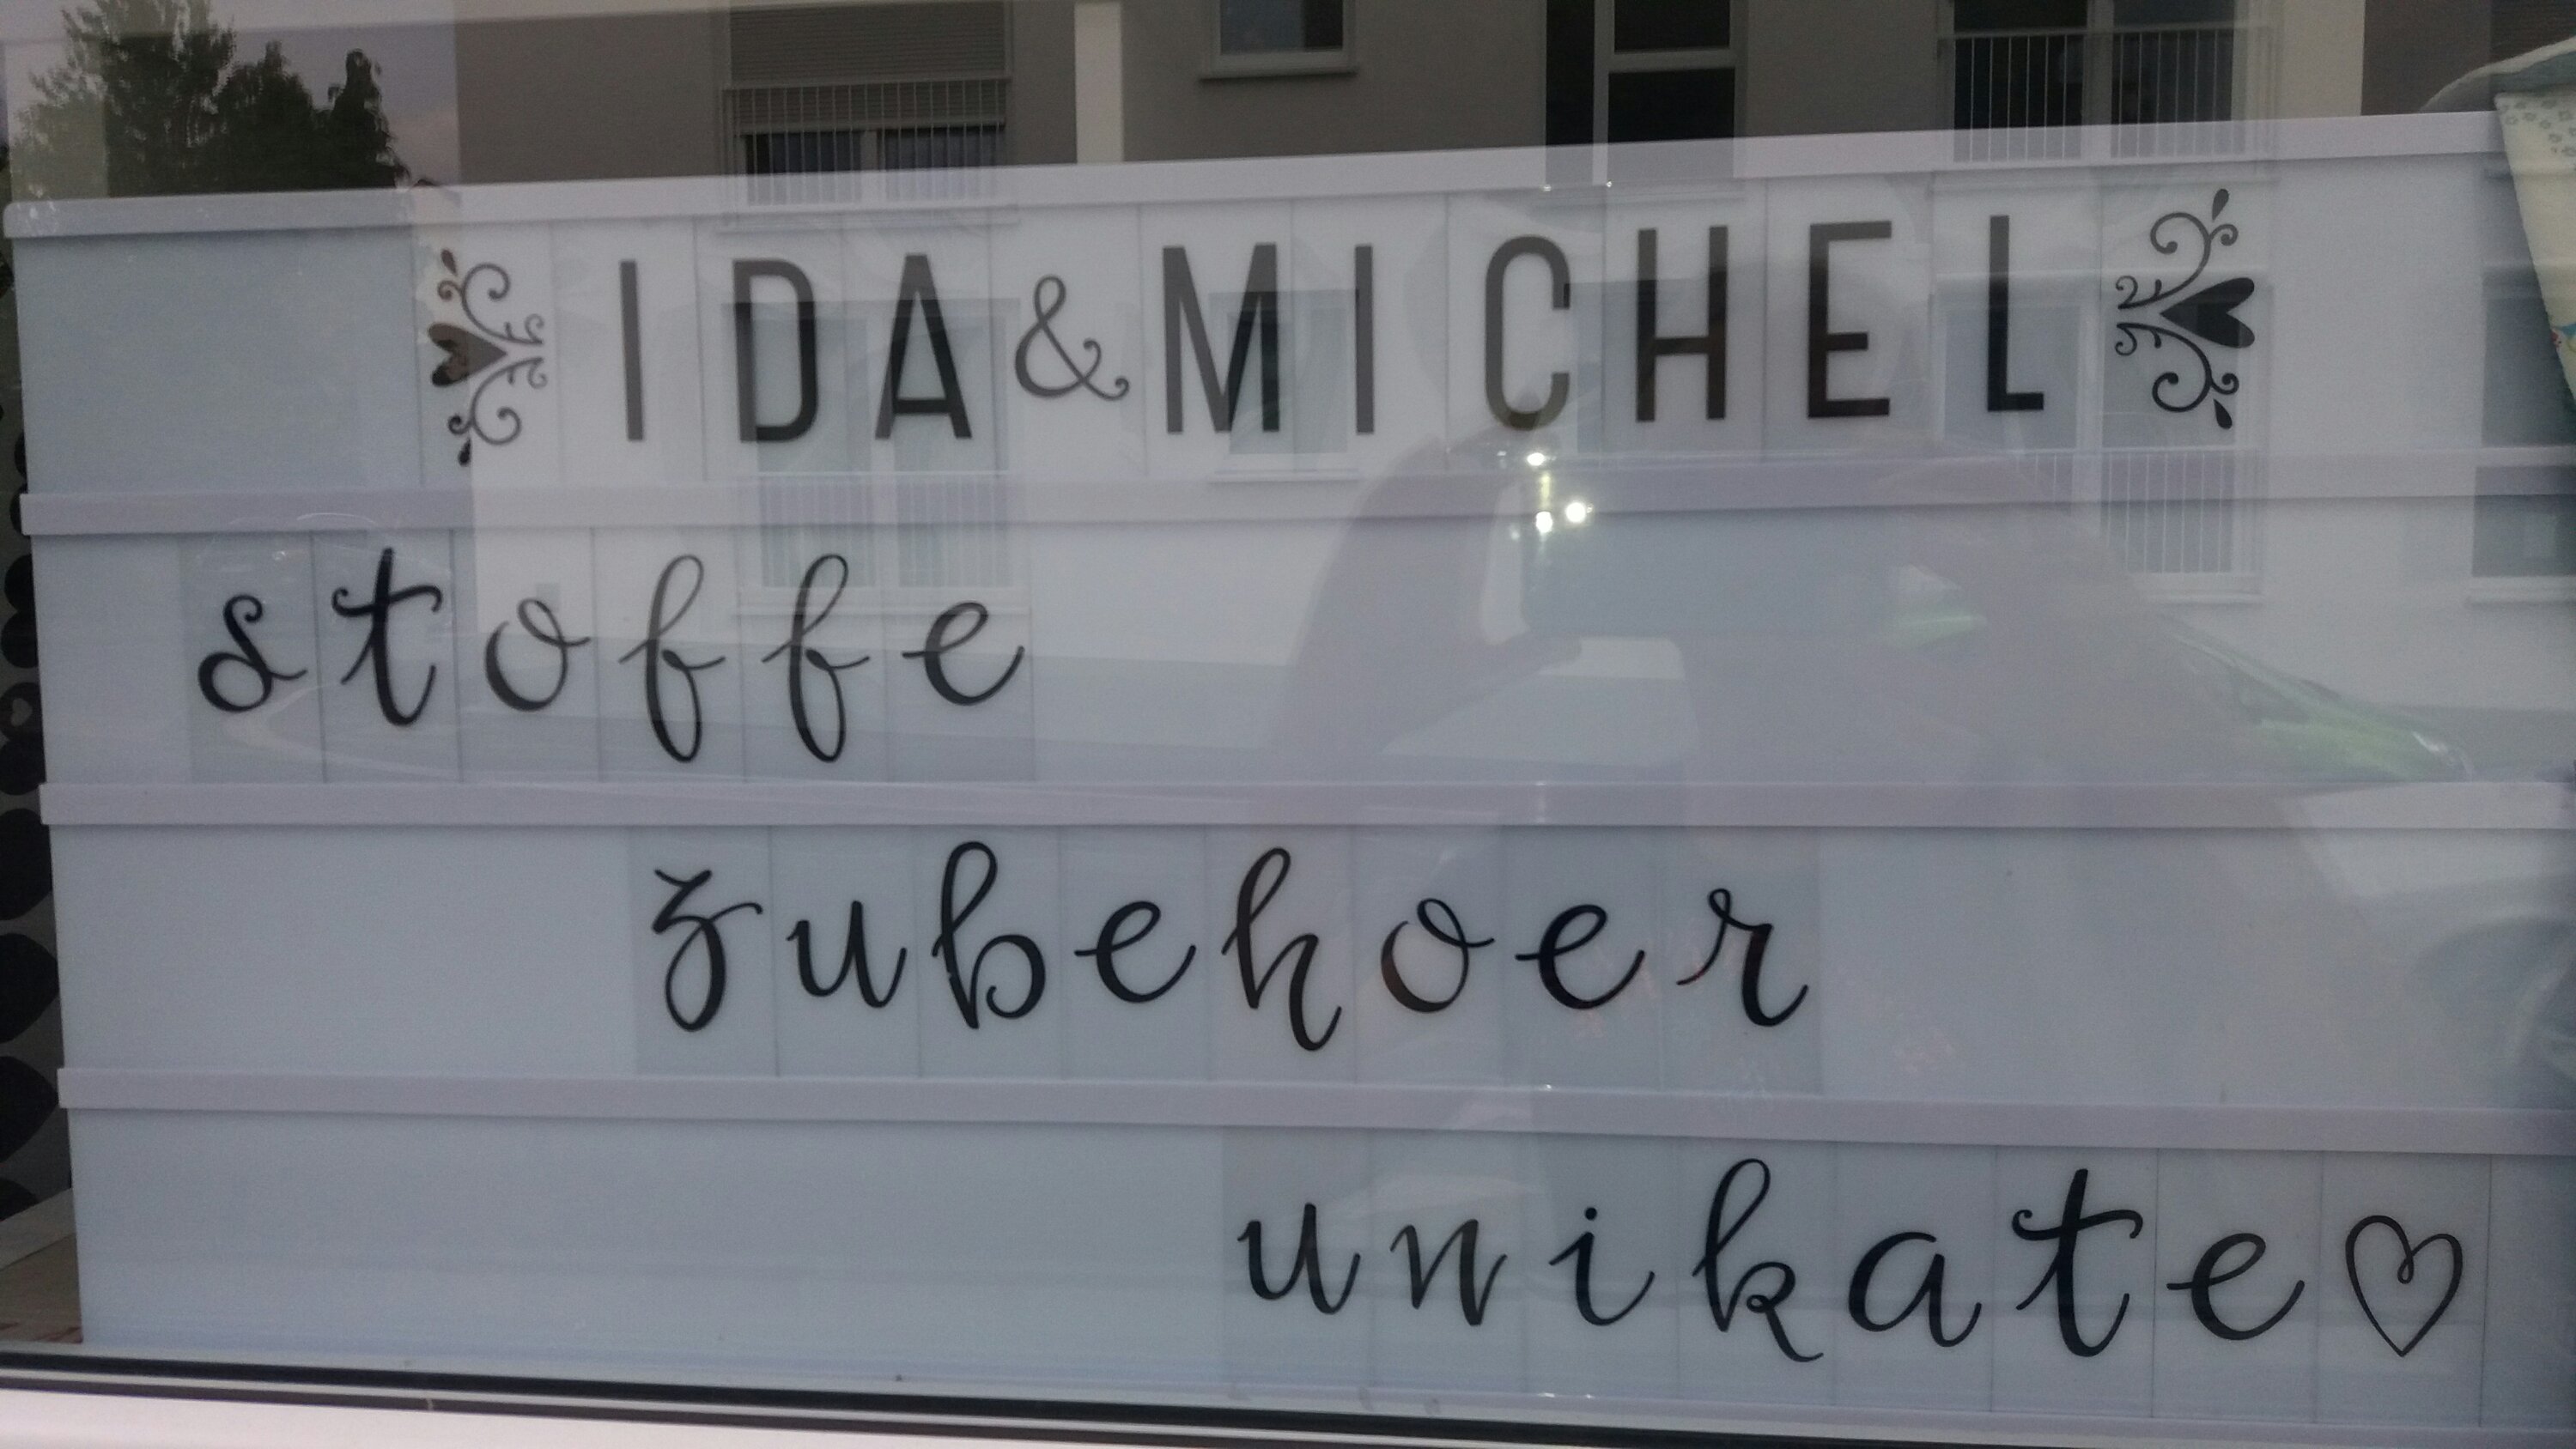 IDA & MICHEL
stoffe
zubehoer
unikate♡